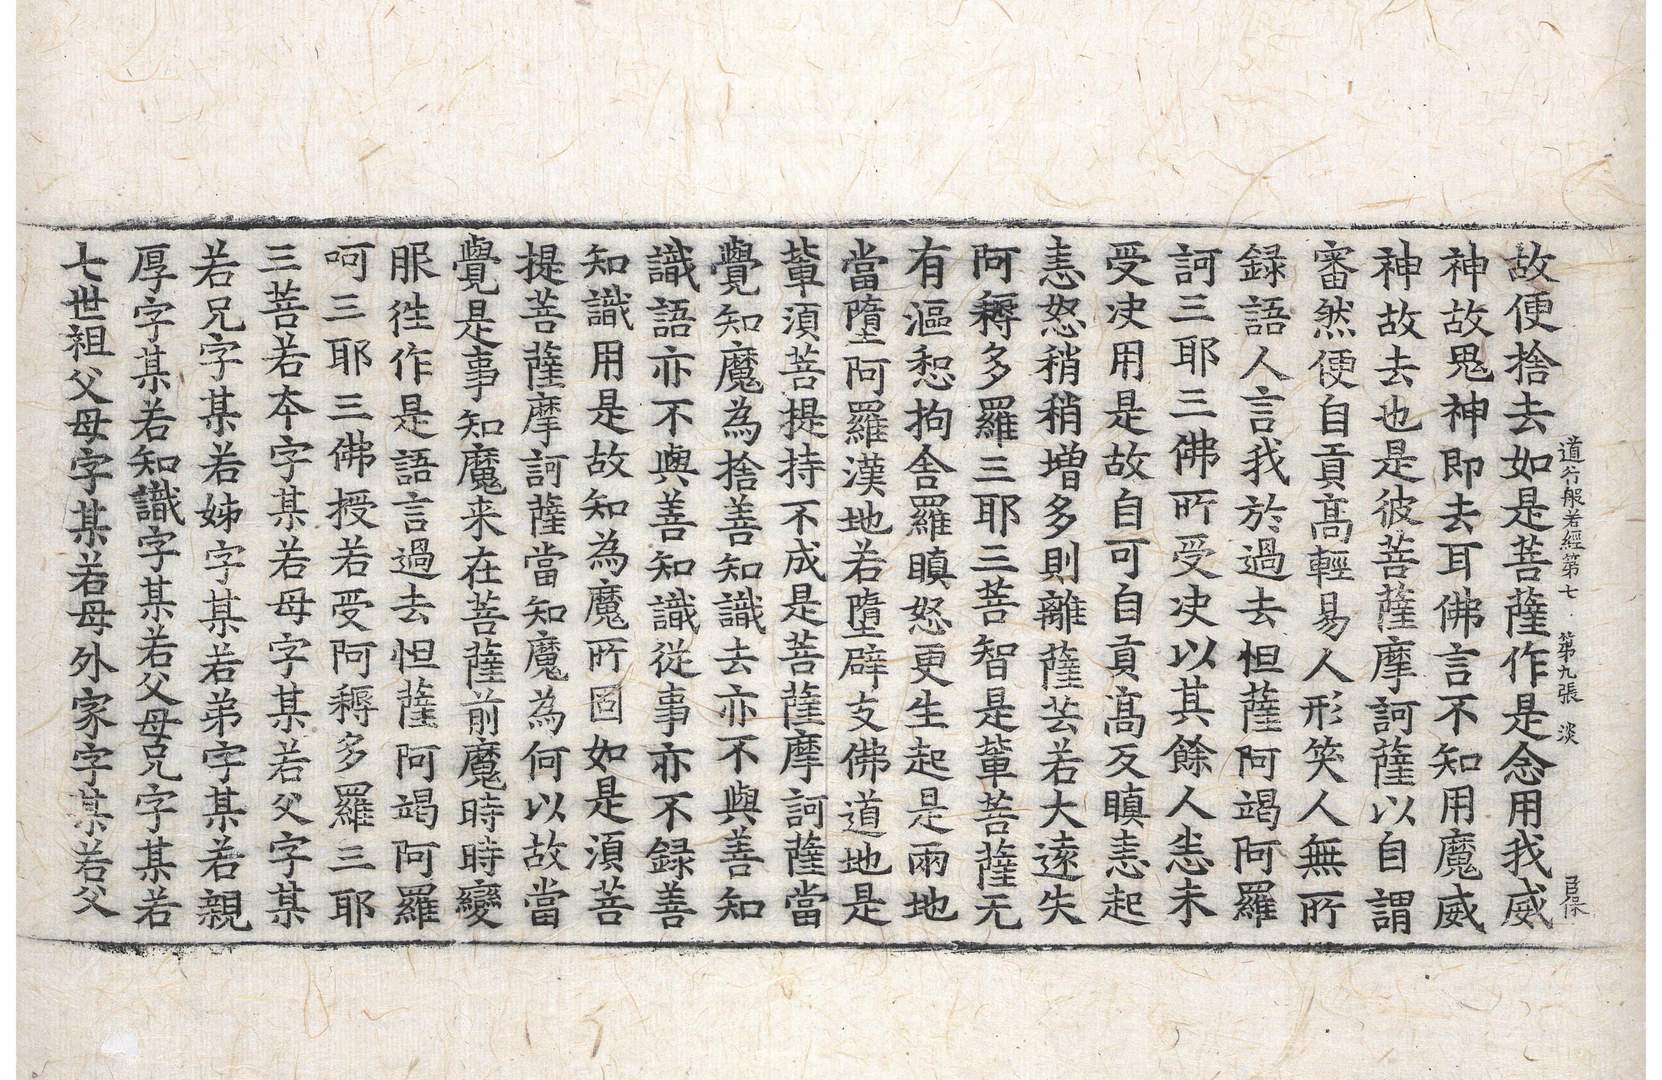 道行般若經第七 第九張 淡
故便捨去如是菩薩作是念用我威
神故鬼神即去耳佛言不知用魔威
神故去也是彼菩薩摩訶薩以自謂
審然便自貢高輕易人形笑人無所
録語人言我於過去怛薩阿竭阿羅
訶三耶三佛所受决以其餘人恚未
受决用是故自可自貢高反瞋恚起
恚怒稍稍增多則離薩芸若大遠失
阿耨多羅三耶三菩智是輩菩薩无
有漚惒拘舍羅瞋怒更生起是兩地
當墮阿羅漢地若墮辟支佛道地是
輩須菩提持不成是菩薩摩訶薩當
覺知魔為捨善知識去亦不與善知
識語亦不與善知識從事亦不録善
知識用是故知為魔所固如是須菩
提菩薩摩訶薩當知魔為何以故當
覺是事知魔来在菩薩前魔時時變
服徃作是語言過去怛薩阿竭阿羅
呵三耶三佛授若受阿耨多羅三耶
三菩若本字某若母字某若父字某
若兄字某若姊字某若弟字某若親
厚字某若知識字某若父母兄字某若
七世祖父母字某若母外家字某若父